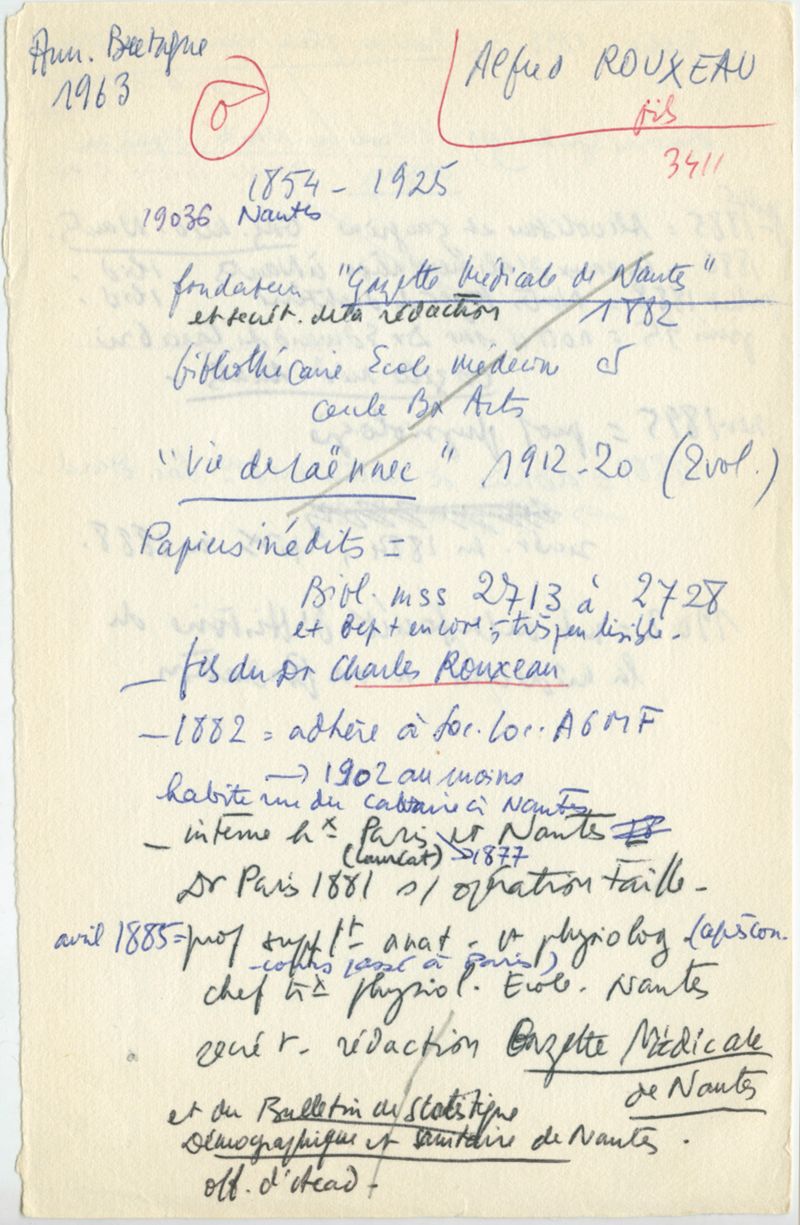 Ann. Bretagne
1963
Alfred ROUXEAU
fils
3411
1854 - 1925
19036 Nantes
fondateur "Gazette Médicale de Nantes"
et secrét. de la rédaction 1882
bibliothécaire Ecole Médecine et
Bx Arts
"Vie de Laënnec" 1912-20 (2 vol.)
Papiers inédits =
Bibl. mss 2713 à 2728
et très peu lisible.
— fils du Dr Charles Rouxeau
— 1882 = adhère à Soc. loc. AGMF
→ 1902 au moins
habite rue du calvaire à Nantes
— interne hx Paris et Nantes
(lauréat) → 1877
Dr Paris 1881 s/ opération taille -
avril 1885 = prof suppt anat. et physiolog (après con-
-cours passé à Paris)
chef tx physiol. Ecole. Nantes
secrét. rédaction Gazette Médicale
de Nantes
et du Bulletin de Statistique
Démographique et sanitaire de Nantes.
off. d'Acad -